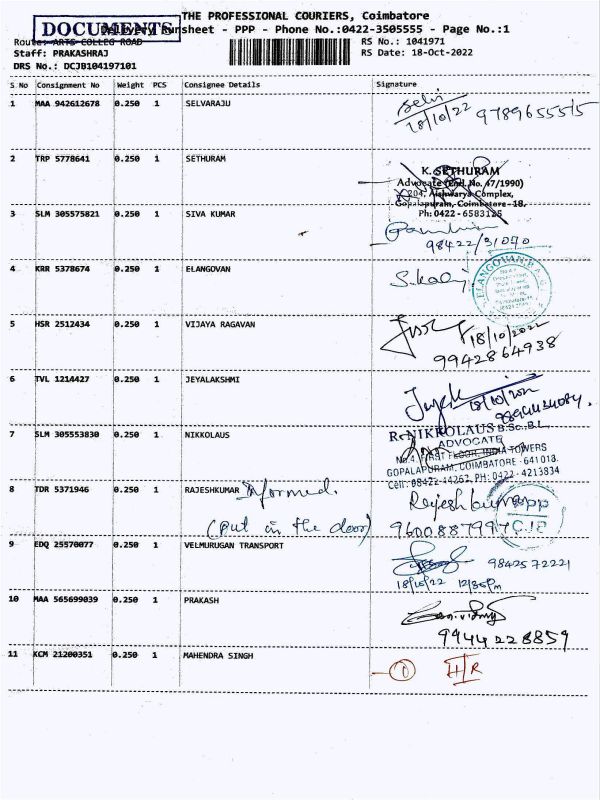 THE PROFESSIONAL COURIERS, Coimbatore
DOCUMENTS
Delivery Runsheet - PPP - Phone No.:0422-3505555 - Page No.:1
Route: ARTS COLLEG ROAD
RS No.: 1041971
Staff: PRAKASHRAJ
RS Date: 18-Oct-2022
DRS No.: DCJB104197101
S No Consignment No Weight PCS Consignee Details Signature
1 MAA 942612678 0.250 1 SELVARAJU
18/10/22 9789655515
2 TRP 5778641 0.250 1 SETHURAM
K. SETHURAM
Advocate (Enl. No. 47/1990)
204, Aishwarya Complex,
Gopalapuram, Coimbatore-18.
Ph: 0422-6583125
3 SLM 305575821 0.250 1 SIVA KUMAR
98422/31070
4 KRR 5378674 0.250 1 ELANGOVAN
ELANGOVAN
5 HSR 2512434 0.250 1 VIJAYA RAGAVAN
18/10/2022
9942864938
6 TVL 1214427 0.250 1 JEYALAKSHMI
7 SLM 305553830 0.250 1 NIKKOLAUS
R. NIKKOLAUS B.Sc., B.L.
ADVOCATE
No.4, FIRST FLOOR, INDIA TOWERS
GOPALAPURAM, COIMBATORE - 641 018.
Cell: 98422-44262, PH: 0422-4213834
8 TDR 5371946 0.250 1 RAJESHKUMAR Informed.
(Put in the door)
Rajeshkumar
9600887997
9 EDQ 25570077 0.250 1 VELMURUGAN TRANSPORT
9842572221
18/10/22 12/35Pm
10 MAA 565699039 0.250 1 PRAKASH
9944228859
11 KCM 21200351 0.250 1 MAHENDRA SINGH